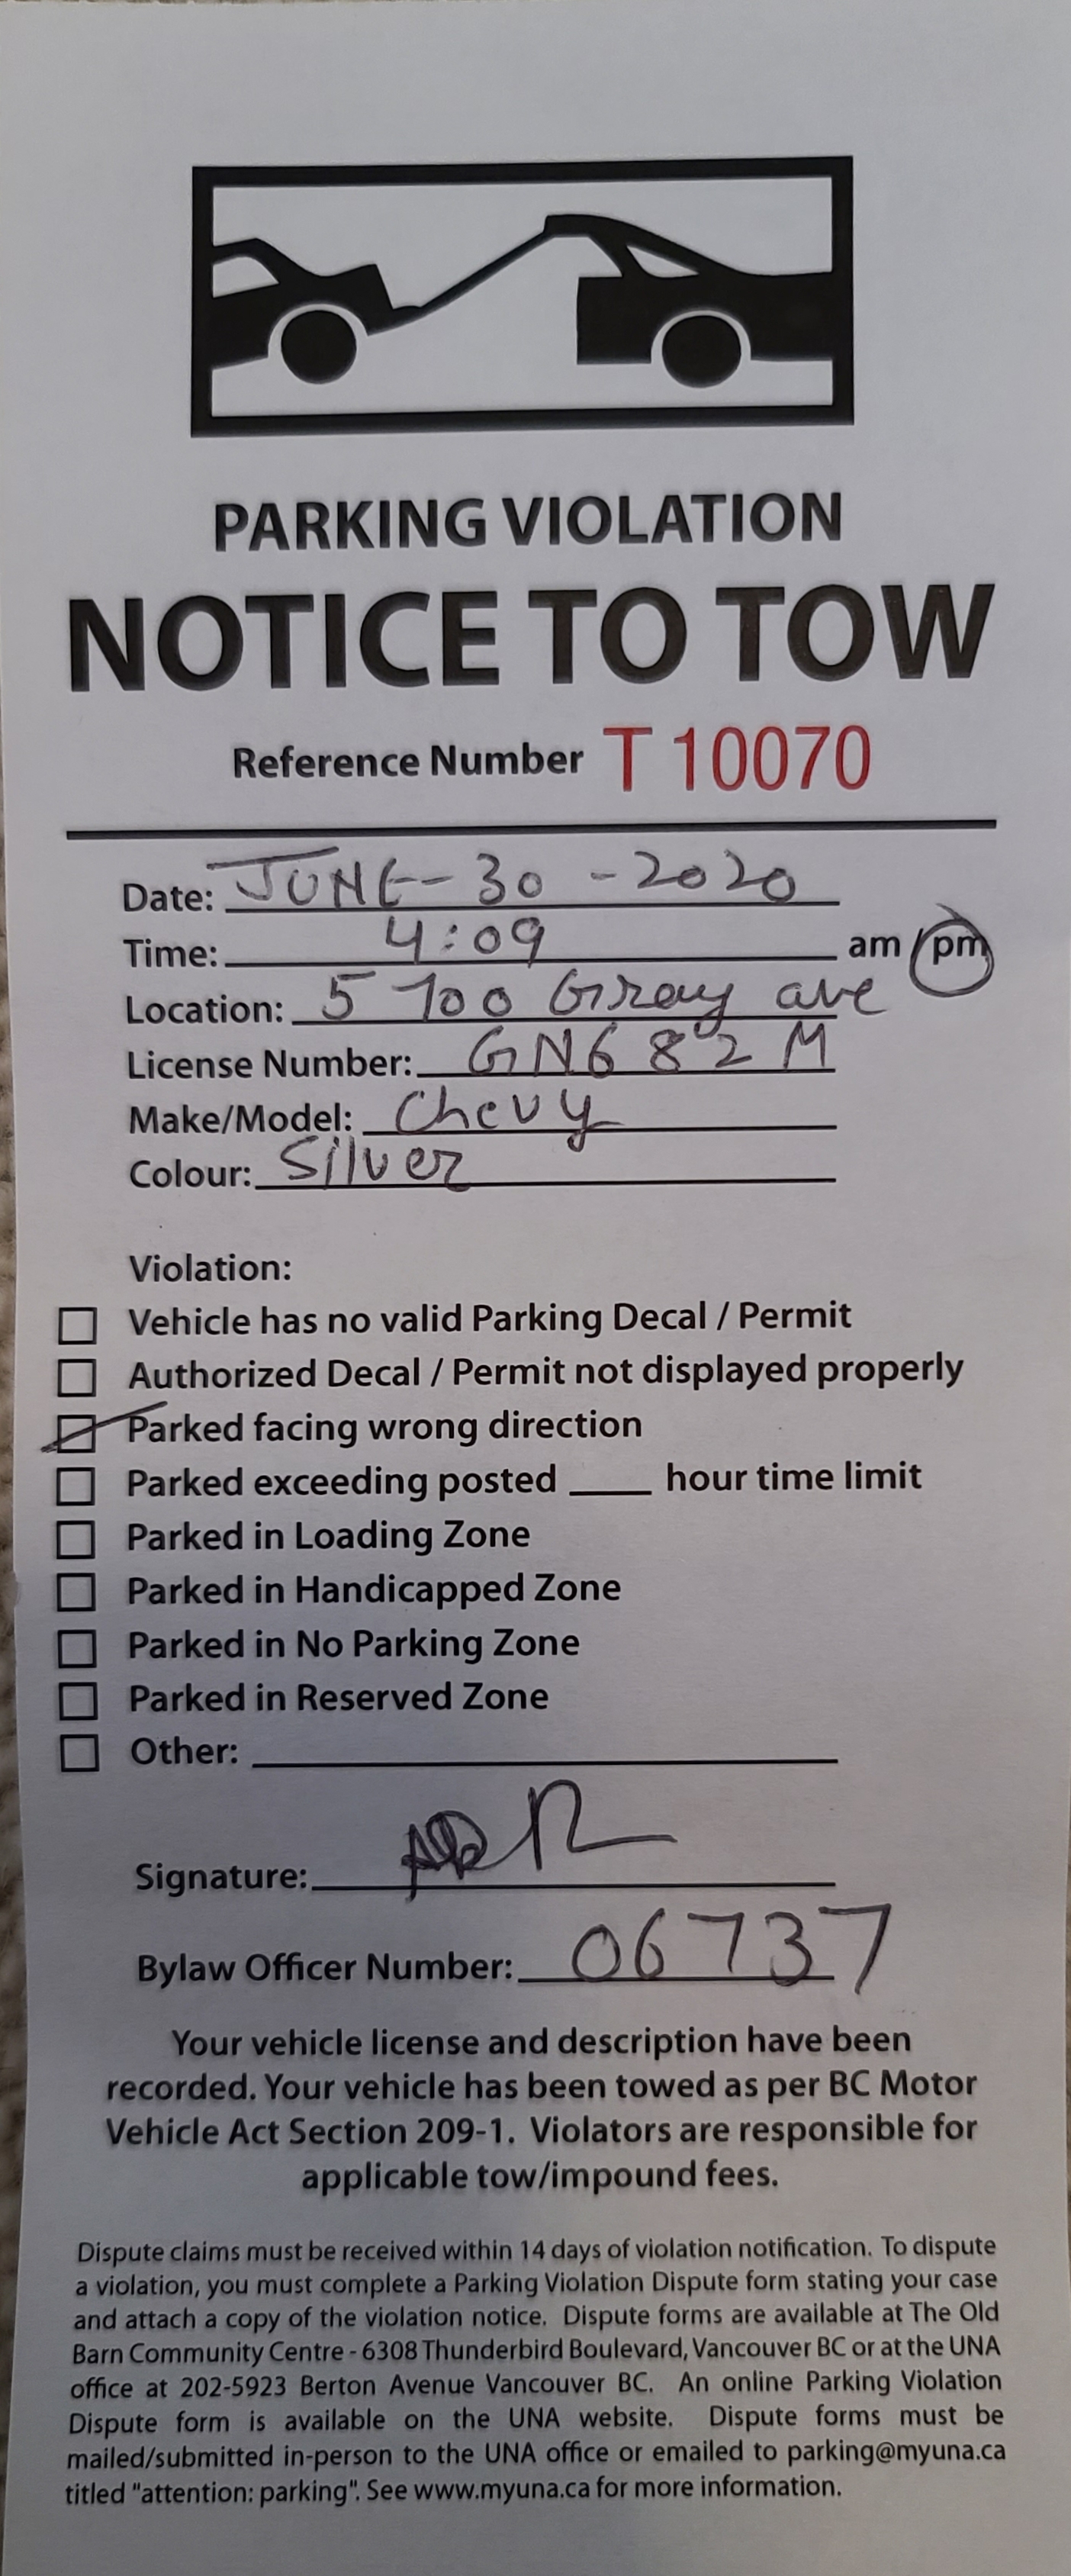 PARKING VIOLATION
NOTICE TO TOW
Reference Number T 10070
Date: JUNE-30-2020
Time: 4:09 am / pm
Location: 5700 Gray ave
License Number: GN682M
Make/Model: Chevy
Colour: Silver
Violation:
Vehicle has no valid Parking Decal / Permit
Authorized Decal / Permit not displayed properly
Parked facing wrong direction
Parked exceeding posted ____ hour time limit
Parked in Loading Zone
Parked in Handicapped Zone
Parked in No Parking Zone
Parked in Reserved Zone
Other:
Signature:
Bylaw Officer Number: 06737
Your vehicle license and description have been
recorded. Your vehicle has been towed as per BC Motor
Vehicle Act Section 209-1. Violators are responsible for
applicable tow/impound fees.
Dispute claims must be received within 14 days of violation notification. To dispute
a violation, you must complete a Parking Violation Dispute form stating your case
and attach a copy of the violation notice. Dispute forms are available at The Old
Barn Community Centre - 6308 Thunderbird Boulevard, Vancouver BC or at the UNA
office at 202-5923 Berton Avenue Vancouver BC. An online Parking Violation
Dispute form is available on the UNA website. Dispute forms must be
mailed/submitted in-person to the UNA office or emailed to parking@myuna.ca
titled "attention: parking". See www.myuna.ca for more information.